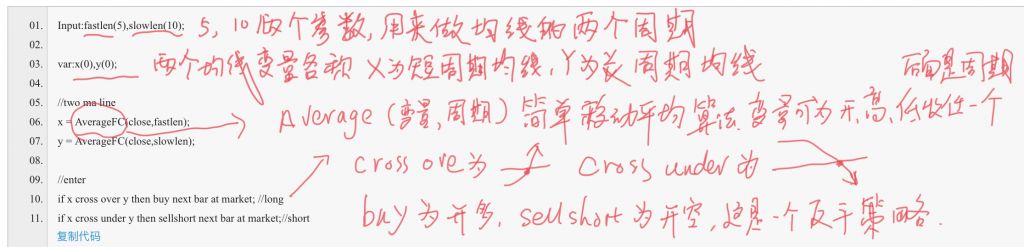 01. Input:fastlen(5),slowlen(10); 5, 10 两个参数,用来做均线的两个周期
02.
03. var:x(0),y(0); 两个均线变量名称 X为短周期均线,Y为长周期均线 后面是周期
04.
05. //two ma line
06. x = AverageFC(close,fastlen); Average(变量,周期)简单移动平均算法.变量可为开,高,低收任一个
07. y = AverageFC(close,slowlen);
08. cross ove为 cross under为
09. //enter
10. if x cross over y then buy next bar at market; //long
11. if x cross under y then sellshort next bar at market;//short buy为开多, sellshort为开空,这是一个反手策略.
复制代码